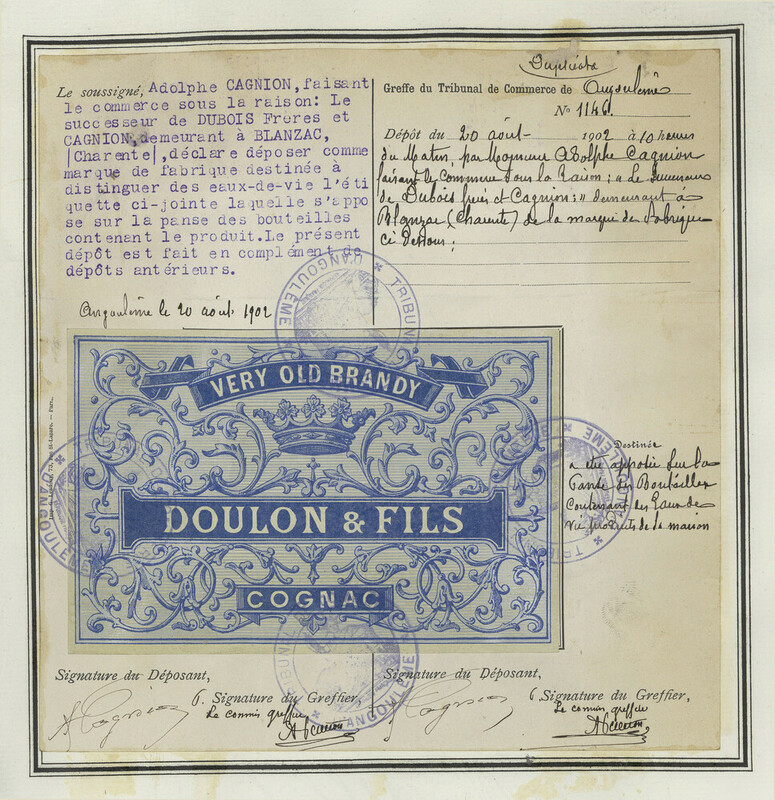 Le soussigné, Adolphe CAGNION, faisant
le commerce sous la raison: Le
successeur de DUBOIS Frères et
CAGNION, demeurant à BLANZAC,
|Charente|, déclare déposer comme
marque de fabrique destinée à
distinguer des eaux-de-vie l'éti
quette ci-jointe laquelle s'appo
se sur la panse des bouteilles
contenant le produit. Le présent
dépôt est fait en complément de
dépôts antérieurs.
Angoulême le 20 août 1902
Duplicata
Greffe du Tribunal de Commerce de Angoulême
No 1146.
Dépôt du 20 août 1902 à 10 heures
du Matin, par Monsieur Adolphe Cagnion
faisant le Commerce sous la Raison; "Le Successeur
de Dubois frères et Cagnion;" demeurant à
Blanzac (Charente) de la marque de Fabrique
ci dessous;
TRIBUNAL D'ANGOULÊME
VERY OLD BRANDY
DOULON & FILS
COGNAC
Destinée
a être apposée sur la
Panse des Bouteilles
Contenant des Eaux de
Vie produits de la maison
TRIBUNAL D'ANGOULÊME
Signature du Déposant,
A Cagnion
6. Signature du Greffier,
Le commis greffier
Signature du Déposant,
A Cagnion
6 Signature du Greffier,
Le commis greffier